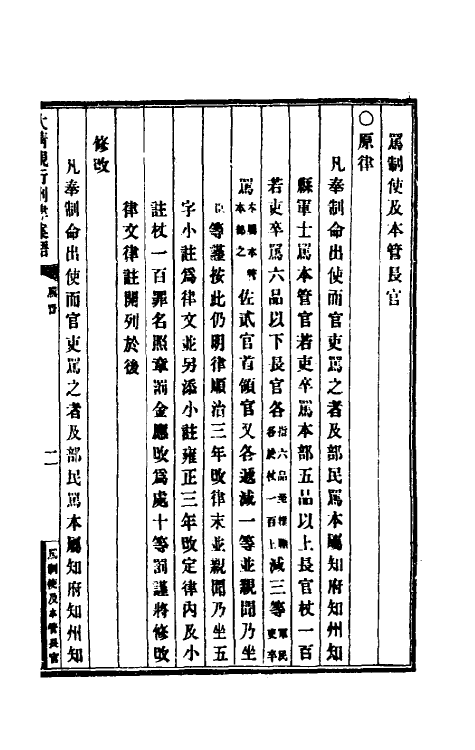 罵制使及本管長官
○原律
凡奉制命出使而官吏罵之者及部民罵本屬知府知州知
縣軍士罵本管官若吏卒罵本部五品以上長官杖一百
若吏卒罵六品以下長官各指六品至雜職各於杖一百上減三等軍民吏卒
罵本屬本管本部之佐貳官首領官又各遞減一等並親聞乃坐
臣等謹按此仍明律順治三年改律末並親聞乃坐五
字小註爲律文並另添小註雍正三年改定律內及小
註杖一百罪名照章罰金應改爲處十等罰謹將修改
律文律註開列於後
修改
凡奉制命出使而官吏罵之者及部民罵本屬知府知州知
大清現行刑律案語
罵詈
二
罵制使及本管長官